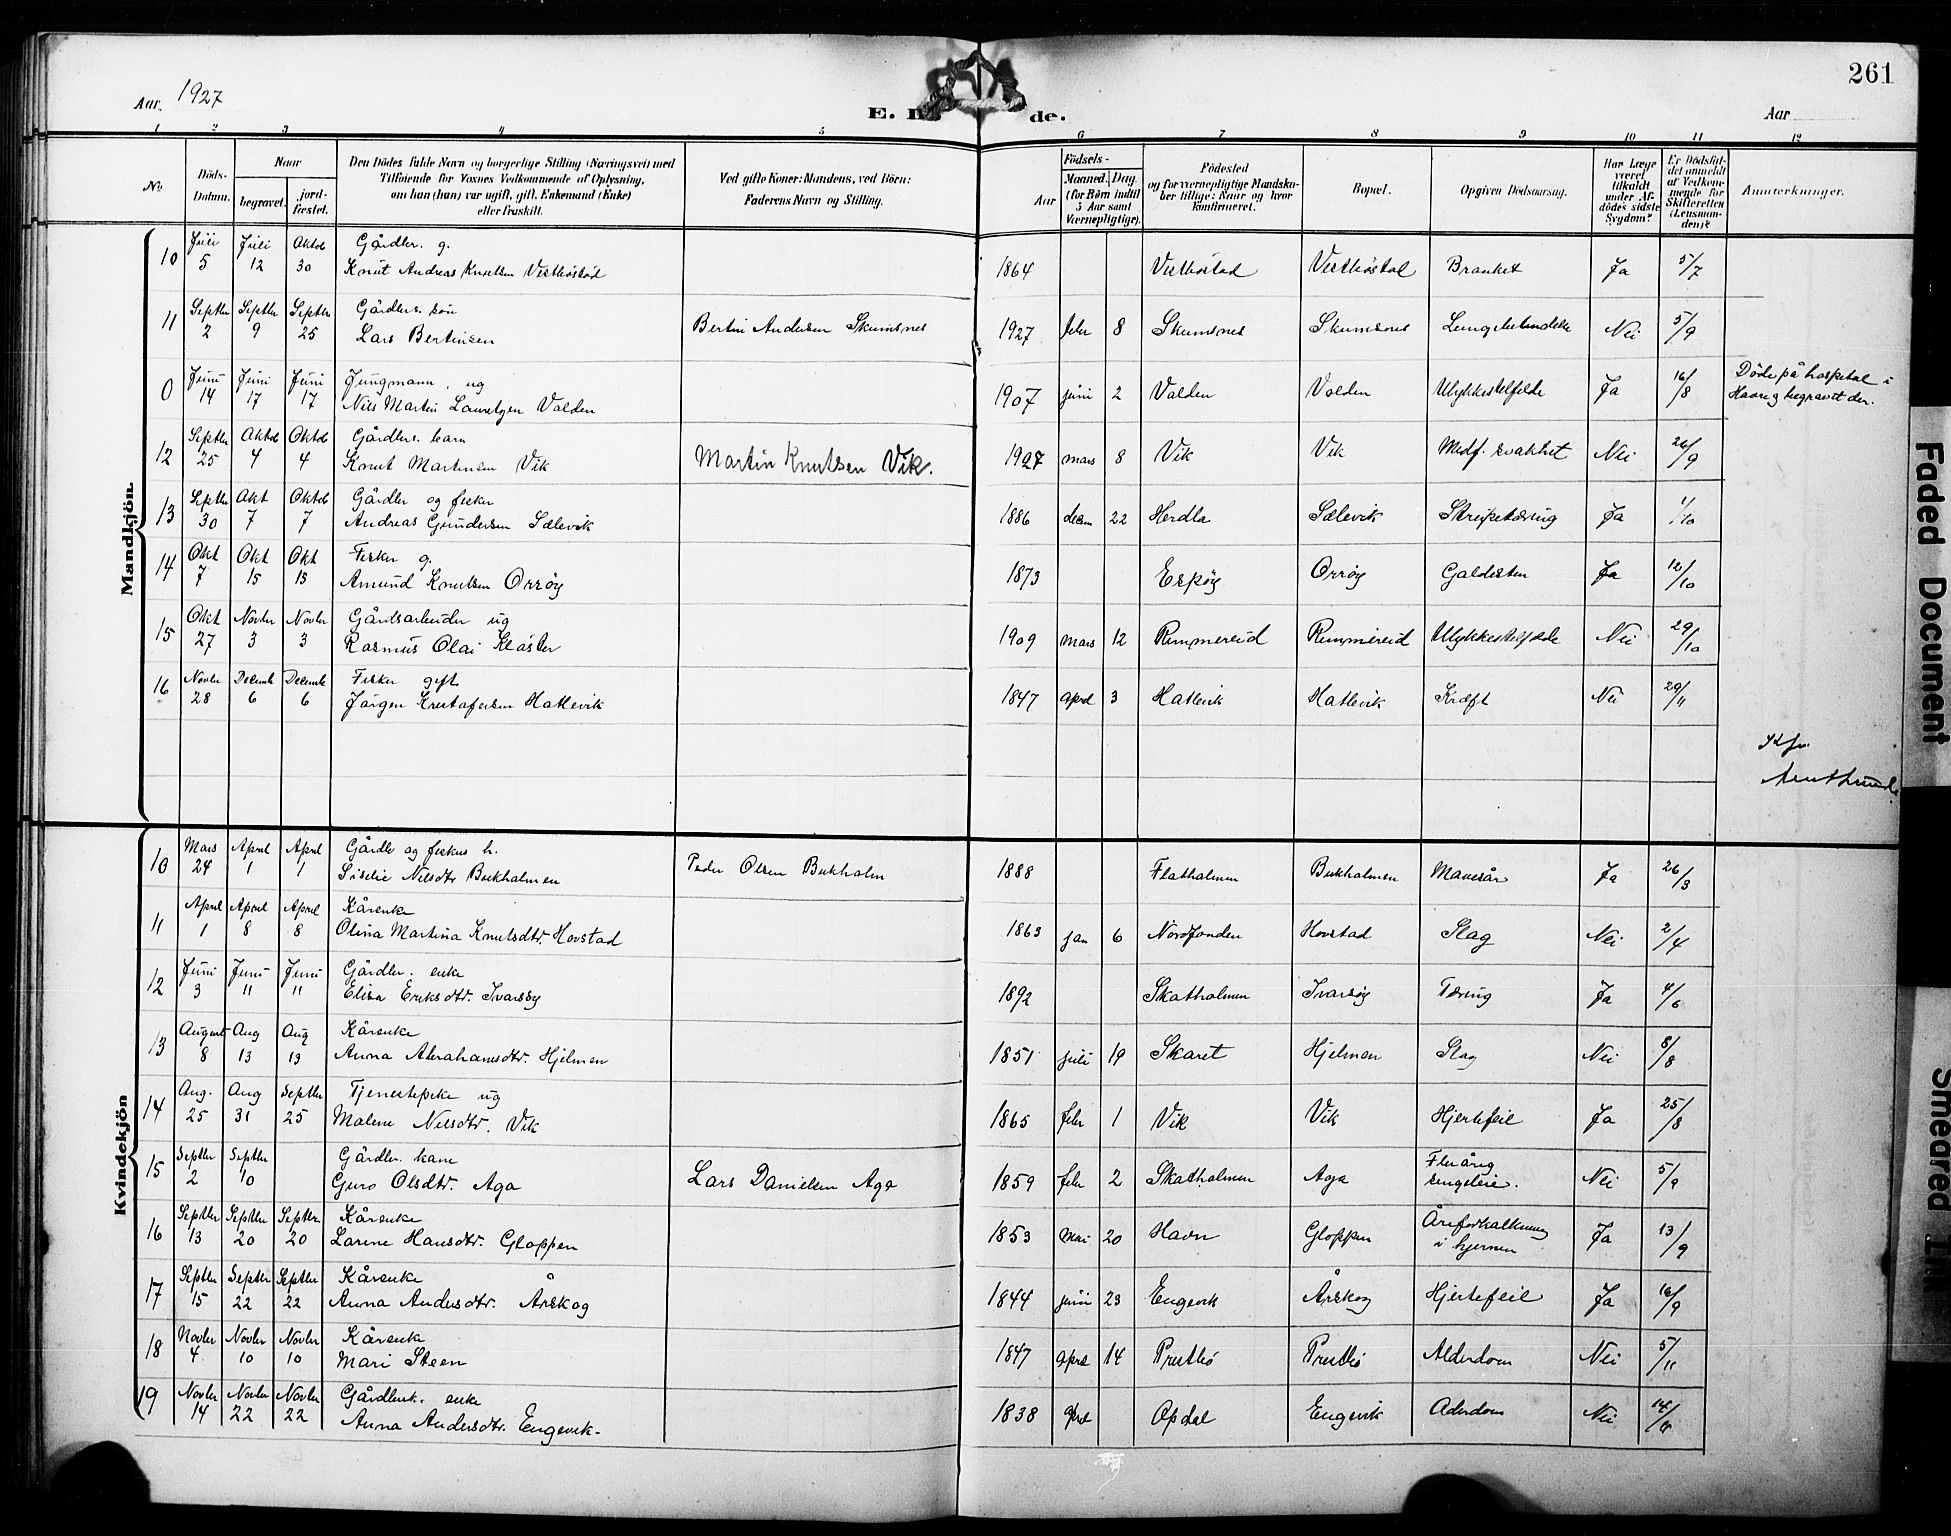 261
Aar. 1927
E. D de.
Aar
1 2 3 4 5 6 7 8 9 10 11 12
No
Döds-Datum.
Naar
begravet.
jord-fæstet.
Den Dödes fulde Navn og borgerlige Stilling (Næringsvei) med
Tilföiende for Voxnes Vedkommende af Oplysning,
om han (hun) var ugift, gift, Enkemand (Enke)
eller fraskilt.
Ved gifte Koner: Mandens, ved Börn:
Faderens Navn og Stilling.
Födsels-
Aar
Maaned. Dag.
(for Börn indtil
5 Aar samt
Værnepligtige).
Födested
og for værnepligtige Mandska-
ber tillige: Naar og hvor
konfirmeret.
Bopæl.
Opgiven Dödsaarsag.
Har Læge
været
tilkaldt
under Af-
dödes sidste
Sygdom?
Er Dödsfal-
det anmeldt
af Vedkom-
mende for
Skifteretten
(Lensman-
den)?
Anmærkninger.
Mandkjön.
10 Juli 5 Juli 12 Oktob 30 Gårdbr. g.
Knut Andreas Knutsen Vestböstad 1864 Vestböstad Vestböstad Brankot Ja 5/7
11 Septbr 2 Septbr 9 Septbr 25 Gårdbrs. sön
Lars Bertinsen Bertin Andersen Skumsnes 1927 febr 8 Skumsnes Skumsnes Nei 5/9
0 Juni 14 Juni 17 Juni 17 Jungmann. ug
Nils Martin Lauritzen Valden 1907 juni 2 Valden Valden Ulykkestilfelde Ja 16/8
Döde på hospital i
Havre og begravet der.
12 Septbr 25 Oktob 4 Oktob 4 Gårdbrs. barn
Knut Martinsen Vik Martin Knutsen Vik. 1927 mars 8 Vik Vik Medf. svakhet Nei 26/9
13 Septbr 30 Okt 7 Oktob 7 Gårdbr og fisker
Andreas Gundersen Sælevik 1886 decem 22 Herdla Sælevik Strupetæring Ja 1/10
14 Okt 7 Okt 15 Okt 15 Fisker g.
Amund Knutsen Orröy 1873 Espöy Orröy Galdesten Ja 12/10
15 Okt 27 Novbr 3 Novbr 3 Gårdsarbeider ug
Rasmus Olai Klöster 1909 mars 12 Rimmereid Rimmereid Ulykkestilfælde Nei 29/10
16 Novbr 28 Decemb 6 Decemb 6 Fisker gift
Jörgen Kristofersen Hatlevik 1847 april 3 Hatlevik Hatlevik Kræft Nei 29/11
Kvindekjön
10 Mars 24 April 1 April 1 Gårdbr og fiskers h.
Siselie Nilsdtr Bukholmen Peder Olsen Bukholm 1888 Flatholmen Bukholmen Mavesår Ja 26/3
11 April 1 April 8 April 8 Kårenke
Olina Martina Knutsdtr. Hovstad 1863 jan 6 Nordfonden Hovstad Slag Nei 2/4
12 Juni 3 Juni 11 Juni 11 Gårdbr. enke
Elisa Eriksdtr. Ivarsöy 1892 Skatholmen Ivarsöy Tæring Ja 4/6
13 August 8 Aug 13 Aug 13 Kårenke
Anna Abrahamsdtr. Hjelmen 1851 juli 19 Skaret Hjelmen Slag Nei 8/8
14 Aug. 25 Aug 31 Septbr 25 Tjenestepike ug
Malene Nilsdtr. Vik 1865 febr 1 Vik Vik Hjertefeil Ja 25/8
15 Septbr 2 Septbr 10 Gårdbr. kone
Guro Olsdtr. Aga Lars Danielsen Aga 1859 febr 2 Skatholmen Aga Flerårig
sengeleie. Nei 5/9
16 Septbr 13 Septbr 20 Septbr 20 Kårenke
Larine Hansdtr. Gloppen 1853 Mai 20 Havn Gloppen Åreforkalkning
i hjernen Ja 13/9
17 Septbr 15 Septbr 22 Septbr 22 Kårenke
Anna Andersdtr. Årskog 1844 juni 23 Engevik Årskog Hjertefeil Ja 16/9
18 Novbr 4 Novbr 10 Novbr 10 Kårenke
Mari Steen 1847 april 14 Prestbö Prestbö Alderdom Nei 5/11
19 Novbr 14 Novbr 22 Novbr 22 Gårdbrk. enke
Anna Andersdtr. Engevik. 1838 april Opdal Engevik Alderdom Nei
Faded Document
Smeared Ink